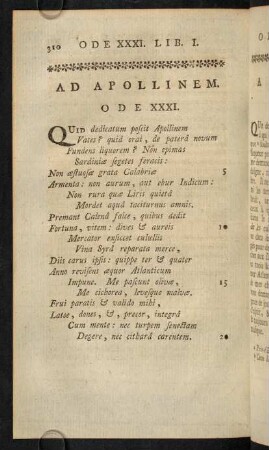 310 ODE XXXI. LIB. I.
AD APOLLINEM.
ODE XXXI.
QUID dedicatum poscit Apollinem
Vates? quid orat, de paterâ novum
Fundens liquorem? Non opimas
Sardiniæ segetes feracis:
Non æstuosæ grata Calabriæ 5
Armenta: non aurum, aut ebur Indicum:
Non rura quæ Liris quietâ
Mordet aquâ taciturnus amnis.
Premant Calenâ falce, quibus dedit
Fortuna, vitem: dives & aureis 10
Mercator exsiccet culullis
Vina Syrâ reparata merce,
Diis carus ipsis: quippe ter & quater
Anno revisens æquor Atlanticum
Impune. Me pascunt olivæ, 15
Me cichorea, levesque malvæ.
Frui paratis & valido mihi,
Latoe, dones, &, precor, integrâ
Cum mente: nec turpem senectam
Degere, nec citharâ carentem. 20